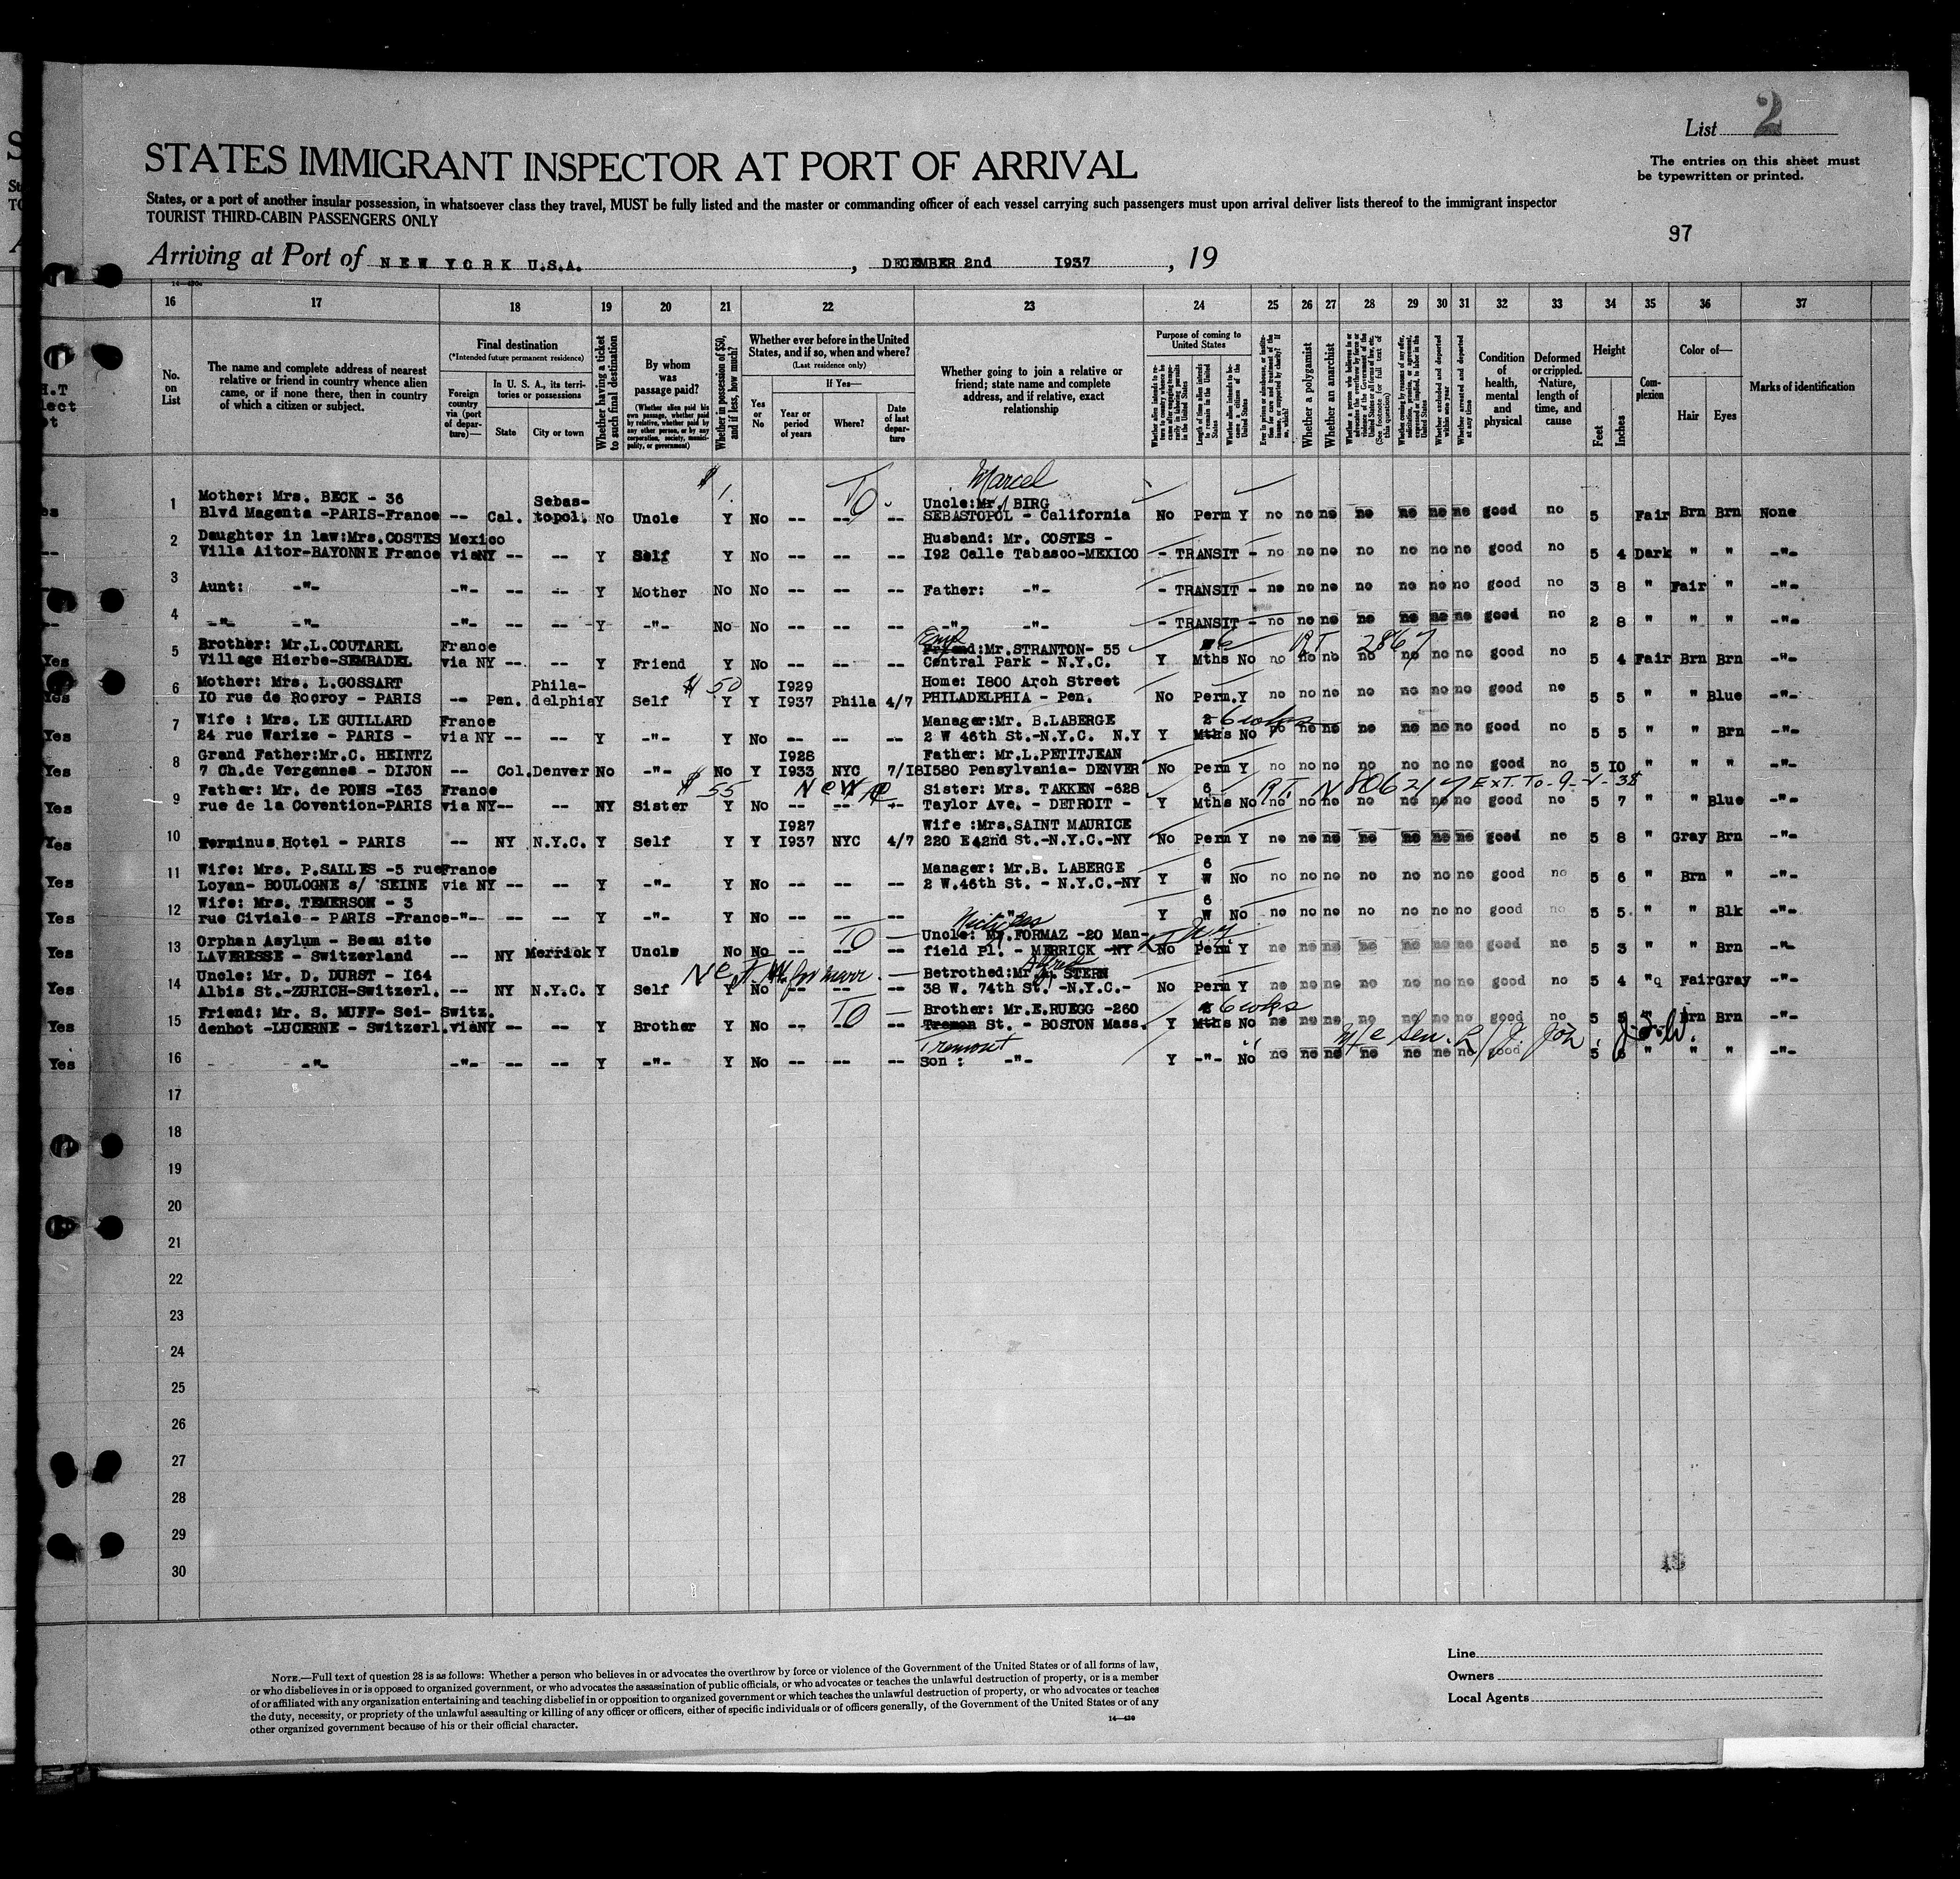 List 2
STATES IMMIGRANT INSPECTOR AT PORT OF ARRIVAL
The entries on this sheet must
be typewritten or printed.
States, or a port of another insular possession, in whatsoever class they travel, MUST be fully listed and the master or commanding officer of each vessel carrying such passengers must upon arrival deliver lists thereof to the immigrant inspector
TOURIST THIRD-CABIN PASSENGERS ONLY
97
Arriving at Port of NEW YORK U.S.A. , DECEMBER 2nd I937 , 19
16 17 18 19 20 21 22 23 24 25 26 27 28 29 30 31 32 33 34 35 36 37
No. on List
The name and complete address of nearest relative or friend in country whence alien came, or if none there, then in country of which a citizen or subject.
Final destination
(*Intended future permanent residence)
Foreign country via (port of departure)—
In U. S. A., its territories or possessions
State
City or town
Whether having a ticket to such final destination
By whom was passage paid?
(Whether alien paid his own passage, whether paid by relative, whether paid by any other person, or by any corporation, society, municipality, or government)
Whether in possession of $50, and if less, how much?
Whether ever before in the United States, and if so, when and where?
(Last residence only)
Yes or No
If Yes—
Year or period of years
Where?
Date of last departure
Whether going to join a relative or friend; state name and complete address, and if relative, exact relationship
Purpose of coming to United States
Length of time alien intends to remain in the United States
Whether a polygamist
Whether an anarchist
Whether excluded and deported within one year
Whether arrested and deported at any time
Condition of health, mental and physical
Deformed or crippled. Nature, length of time, and cause
Height
Feet
Inches
Complexion
Color of—
Hair
Eyes
Marks of identification
$ 1. TO Marcel
1 Mother: Mrs. BECK - 36 Sebas- Uncle:Mr. BIRG
Blvd Magenta -PARIS-France -- Cal. topol. No Uncle Y No -- -- -- SEBASTOPOL - California No Perm Y no no no no no no no good no 5 Fair Brn Brn None
2 Daughter in law:Mrs.COSTES Mexico Husband: Mr. COSTES -
Villa Aitor-BAYONNE France viaNY -- -- Y Self Y No -- -- -- I92 Calle Tabasco-MEXICO - TRANSIT - no no no no no no no good no 5 4 Dark " " -"-
3 Aunt: -"- -"- -- -- Y Mother No No -- -- -- Father: -"- - TRANSIT - no no no no no no no good no 3 8 " Fair " -"-
4 -"- -"- -- -- Y -"- No No -- -- -- -"- -"- - TRANSIT - no no no no no no no good no 2 8 " " " -"-
5 Brother: Mr.L.COUTAREL France Friend:Mr.STRANTON- 55 6 RT 2867
Village Hierbe-SEMBADEL via NY -- -- Y Friend Y No -- -- -- Central Park - N.Y.C. Y Mths No no no no no no no no good no 5 4 Fair Brn Brn -"-
6 Mother: Mrs. L.GOSSART Phila- $ 50 I929 Home: I800 Arch Street
I0 rue de Rocroy - PARIS -- Pen. delphia Y Self Y Y I937 Phila 4/7 PHILADELPHIA - Pen. No Perm. Y no no no no no no no good no 5 5 " " Blue -"-
7 Wife : Mrs. LE GUILLARD France Manager:Mr. B.LABERGE 2 6 wks
24 rue Warize - PARIS - via NY -- -- Y -"- Y No -- -- -- 2 W 46th St.-N.Y.C. N.Y Y Mths No no no no no no no no good no 5 5 " " Brn -"-
8 Grand Father:Mr.C. HEINTZ I928 Father: Mr.L.PETITJEAN
7 Ch.de Vergennes - DIJON -- Col. Denver No -"- No Y I933 NYC 7/I8 I580 Pensylvania- DENVER No Perm Y no no no no no no no good no 5 I0 " " " -"-
9 Father: Mr. de PONS -I63 France $ 55 Sister: Mrs. TAKKEN -628 6 RT. N 806217 EXT. TO-9-1-38
rue de la Covention-PARIS via NY-- -- NY Sister Y No -- -- -- Taylor Ave. - DETROIT - Y Mths No no no no no no no no good no 5 7 " " Blue -"-
10 I927 Wife :Mrs.SAINT MAURICE
Terminus Hotel - PARIS -- NY N.Y.C. Y Self Y Y I937 NYC 4/7 220 E42nd St.-N.Y.C.-NY No Perm Y no no no no no no no good no 5 8 " Gray Brn -"-
11 Wife: Mrs. P.SALLES -5 rue France Manager: Mr.B. LABERGE 6
Loyan- BOULOGNE s/ SEINE via NY -- -- Y -"- Y No -- -- -- 2 W.46th St. - N.Y.C.-NY Y W No no no no no no no no good no 5 6 " Brn " -"-
12 Wife: Mrs. TEMERSON - 3 6
rue Civiale - PARIS -France -"- -- -- Y -"- Y No -- -- -- " Y W No no no no no no no no good no 5 5 " " Blk -"-
13 Orphan Asylum - Beau site TO Uncle: Mr.FORMAZ -20 Man-
LAVERESSE - Switzerland -- NY Merrick Y Uncle No No -- -- -- field Pl. - MERRICK -NY No Perm Y no no no no no no no good no 5 3 " " Brn -"-
14 Uncle: Mr. D. DURST - I64 Alfred Betrothed:Mr.A. STERN
Albis St.-ZURICH-Switzerl. -- NY N.Y.C. Y Self Y No -- -- -- 38 W. 74th St. -N.Y.C.- No Perm Y no no no no no no no good no 5 4 " Fair Gray -"-
15 Friend: Mr. S. MUFF- Sei- Switz. TO Brother: Mr.E.RUEGG -260 6 wks
denhot -LUCERNE - Switzerl. viaNY -- -- Y Brother Y No -- -- -- Tremon St. - BOSTON Mass. Y Mths No no no no no no no no good no 5 5 " Brn Brn -"-
Tremont
16 -"- -"- -- -- Y -"- Y No -- -- -- Son : -"- Y -"- No no no no no no no no good 5 6 " " " -"-
17
18
19
20
21
22
23
24
25
26
27
28
29
30
Yes
NOTE.—Full text of question 28 is as follows: Whether a person who believes in or advocates the overthrow by force or violence of the Government of the United States or of all forms of law,
or who disbelieves in or is opposed to organized government, or who advocates the assassination of public officials, or who advocates or teaches the unlawful destruction of property, or is a member
of or affiliated with any organization entertaining and teaching disbelief in or opposition to organized government or which teaches the unlawful destruction of property, or who advocates or teaches
the duty, necessity, or propriety of the unlawful assaulting or killing of any officer or officers, either of specific individuals or of officers generally, of the Government of the United States or of any
other organized government because of his or their official character.
14—430
Line
Owners
Local Agents